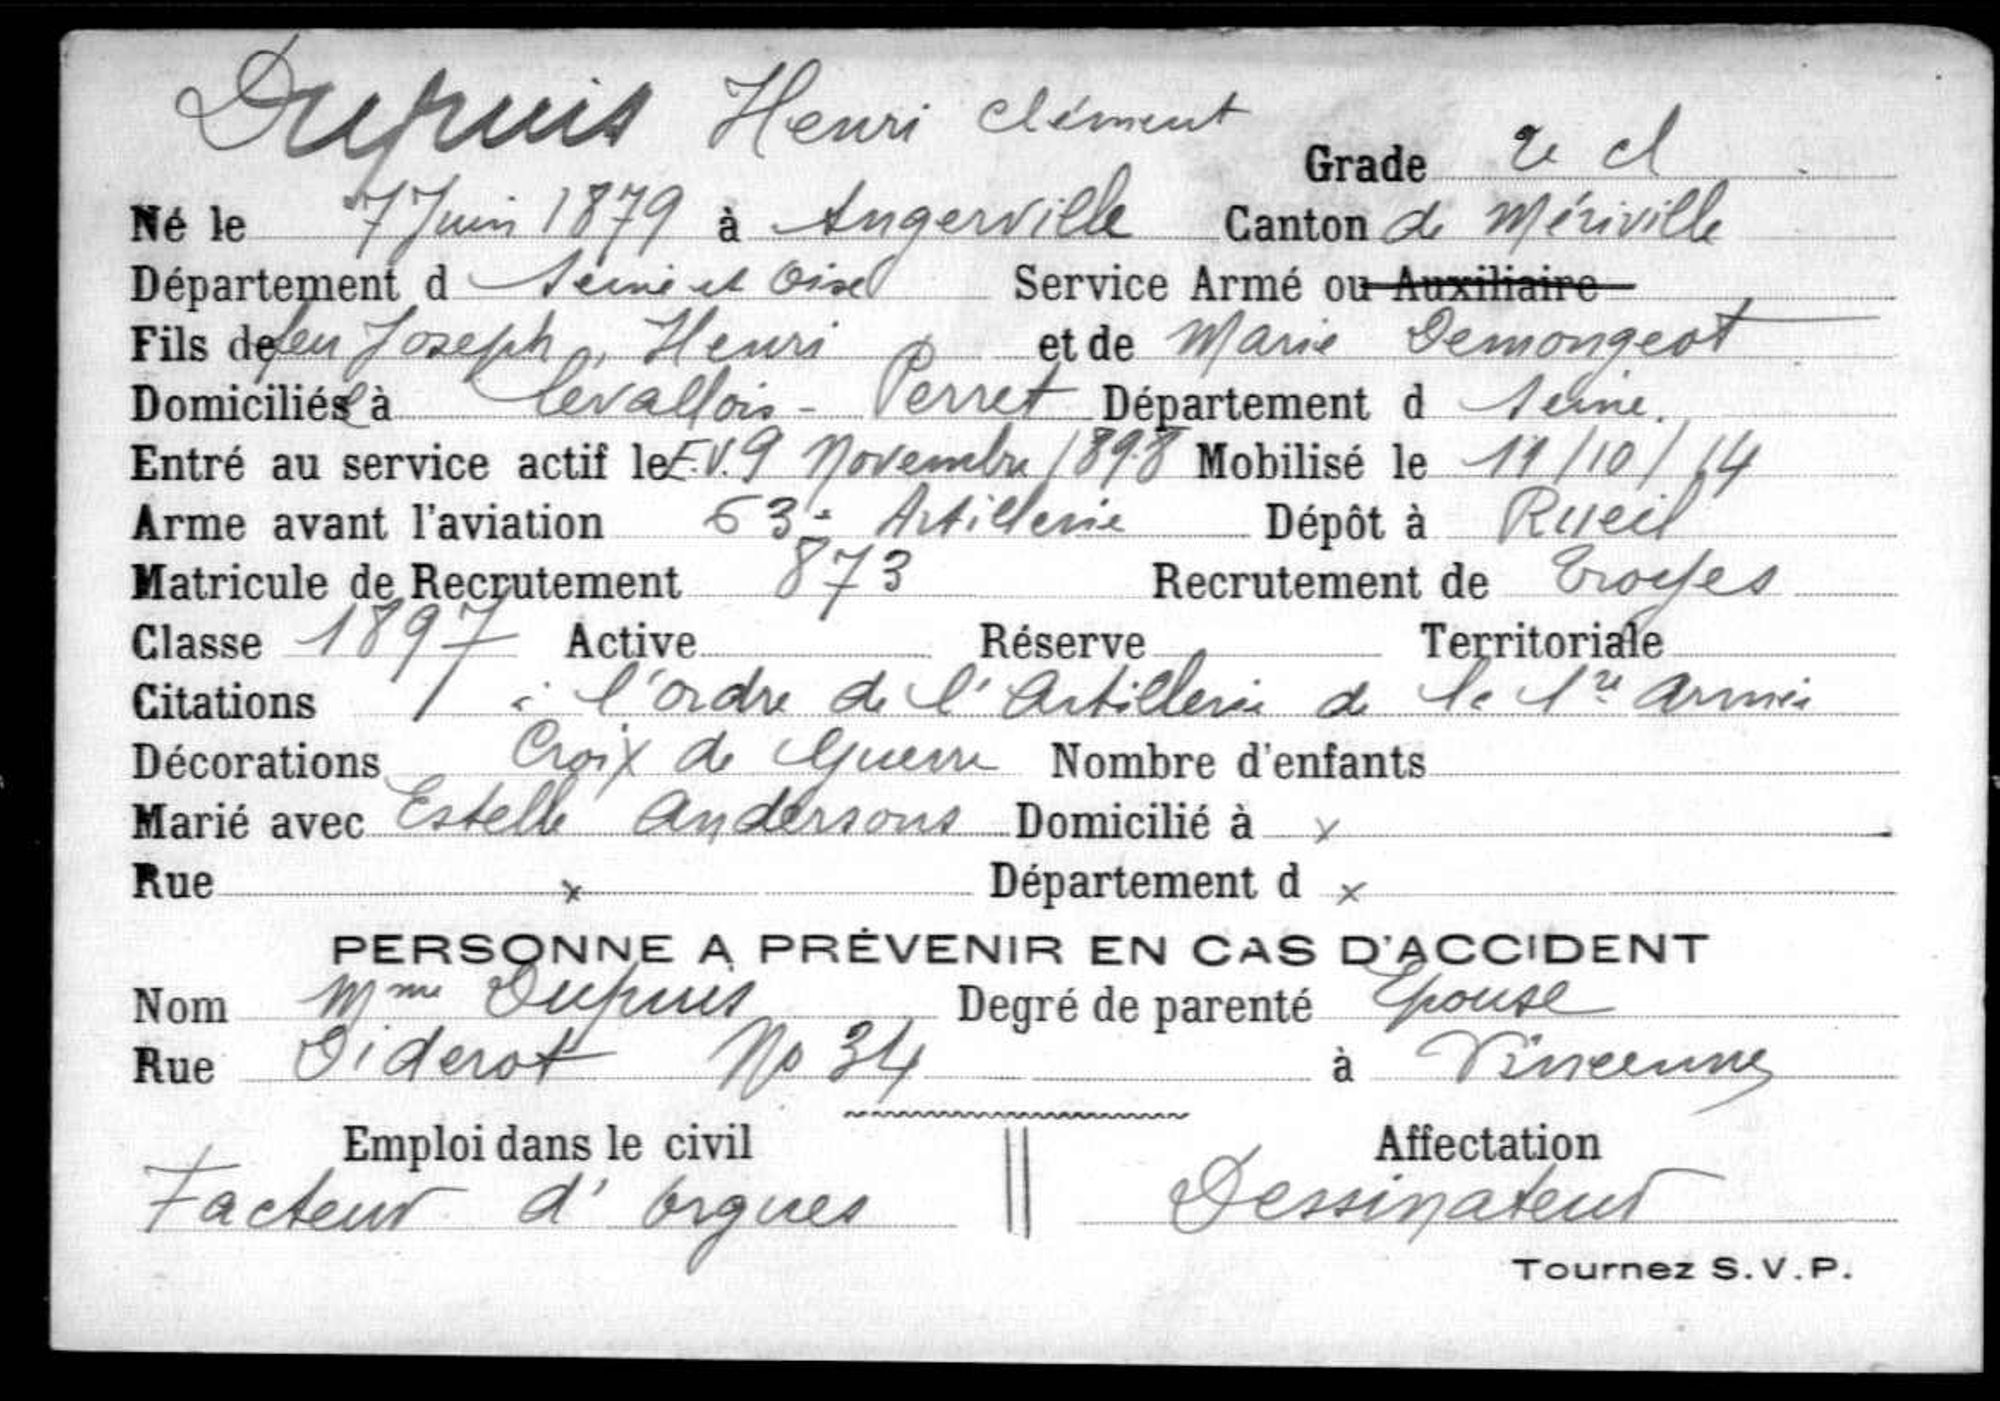 Dupuis Henri Clément
Grade 2e cl
Né le 7 Juin 1879 à Angerville Canton de Mériville
Département d Seine et Oise Service Armé ou Auxiliaire
Fils de feu Joseph, Henri et de Marie Demongeot
Domiciliés à Levallois-Perret Département d Seine.
Entré au service actif le E.V. 9 Novembre 1898 Mobilisé le 11/10/14
Arme avant l'aviation 63e Artillerie Dépôt à Rueil
Matricule de Recrutement 873 Recrutement de Troyes
Classe 1897 Active Réserve Territoriale
Citations 1 à l'ordre de l'Artillerie de la 1re Armée
Décorations Croix de Guerre Nombre d'enfants
Marié avec Estelle Andersons Domicilié à x
Rue x Département d x
PERSONNE A PRÉVENIR EN CAS D'ACCIDENT
Nom Mme Dupuis Degré de parenté Epouse
Rue Diderot No 34 à Vincennes
Emploi dans le civil Affectation
Facteur d'orgues Dessinateur
Tournez S.V.P.